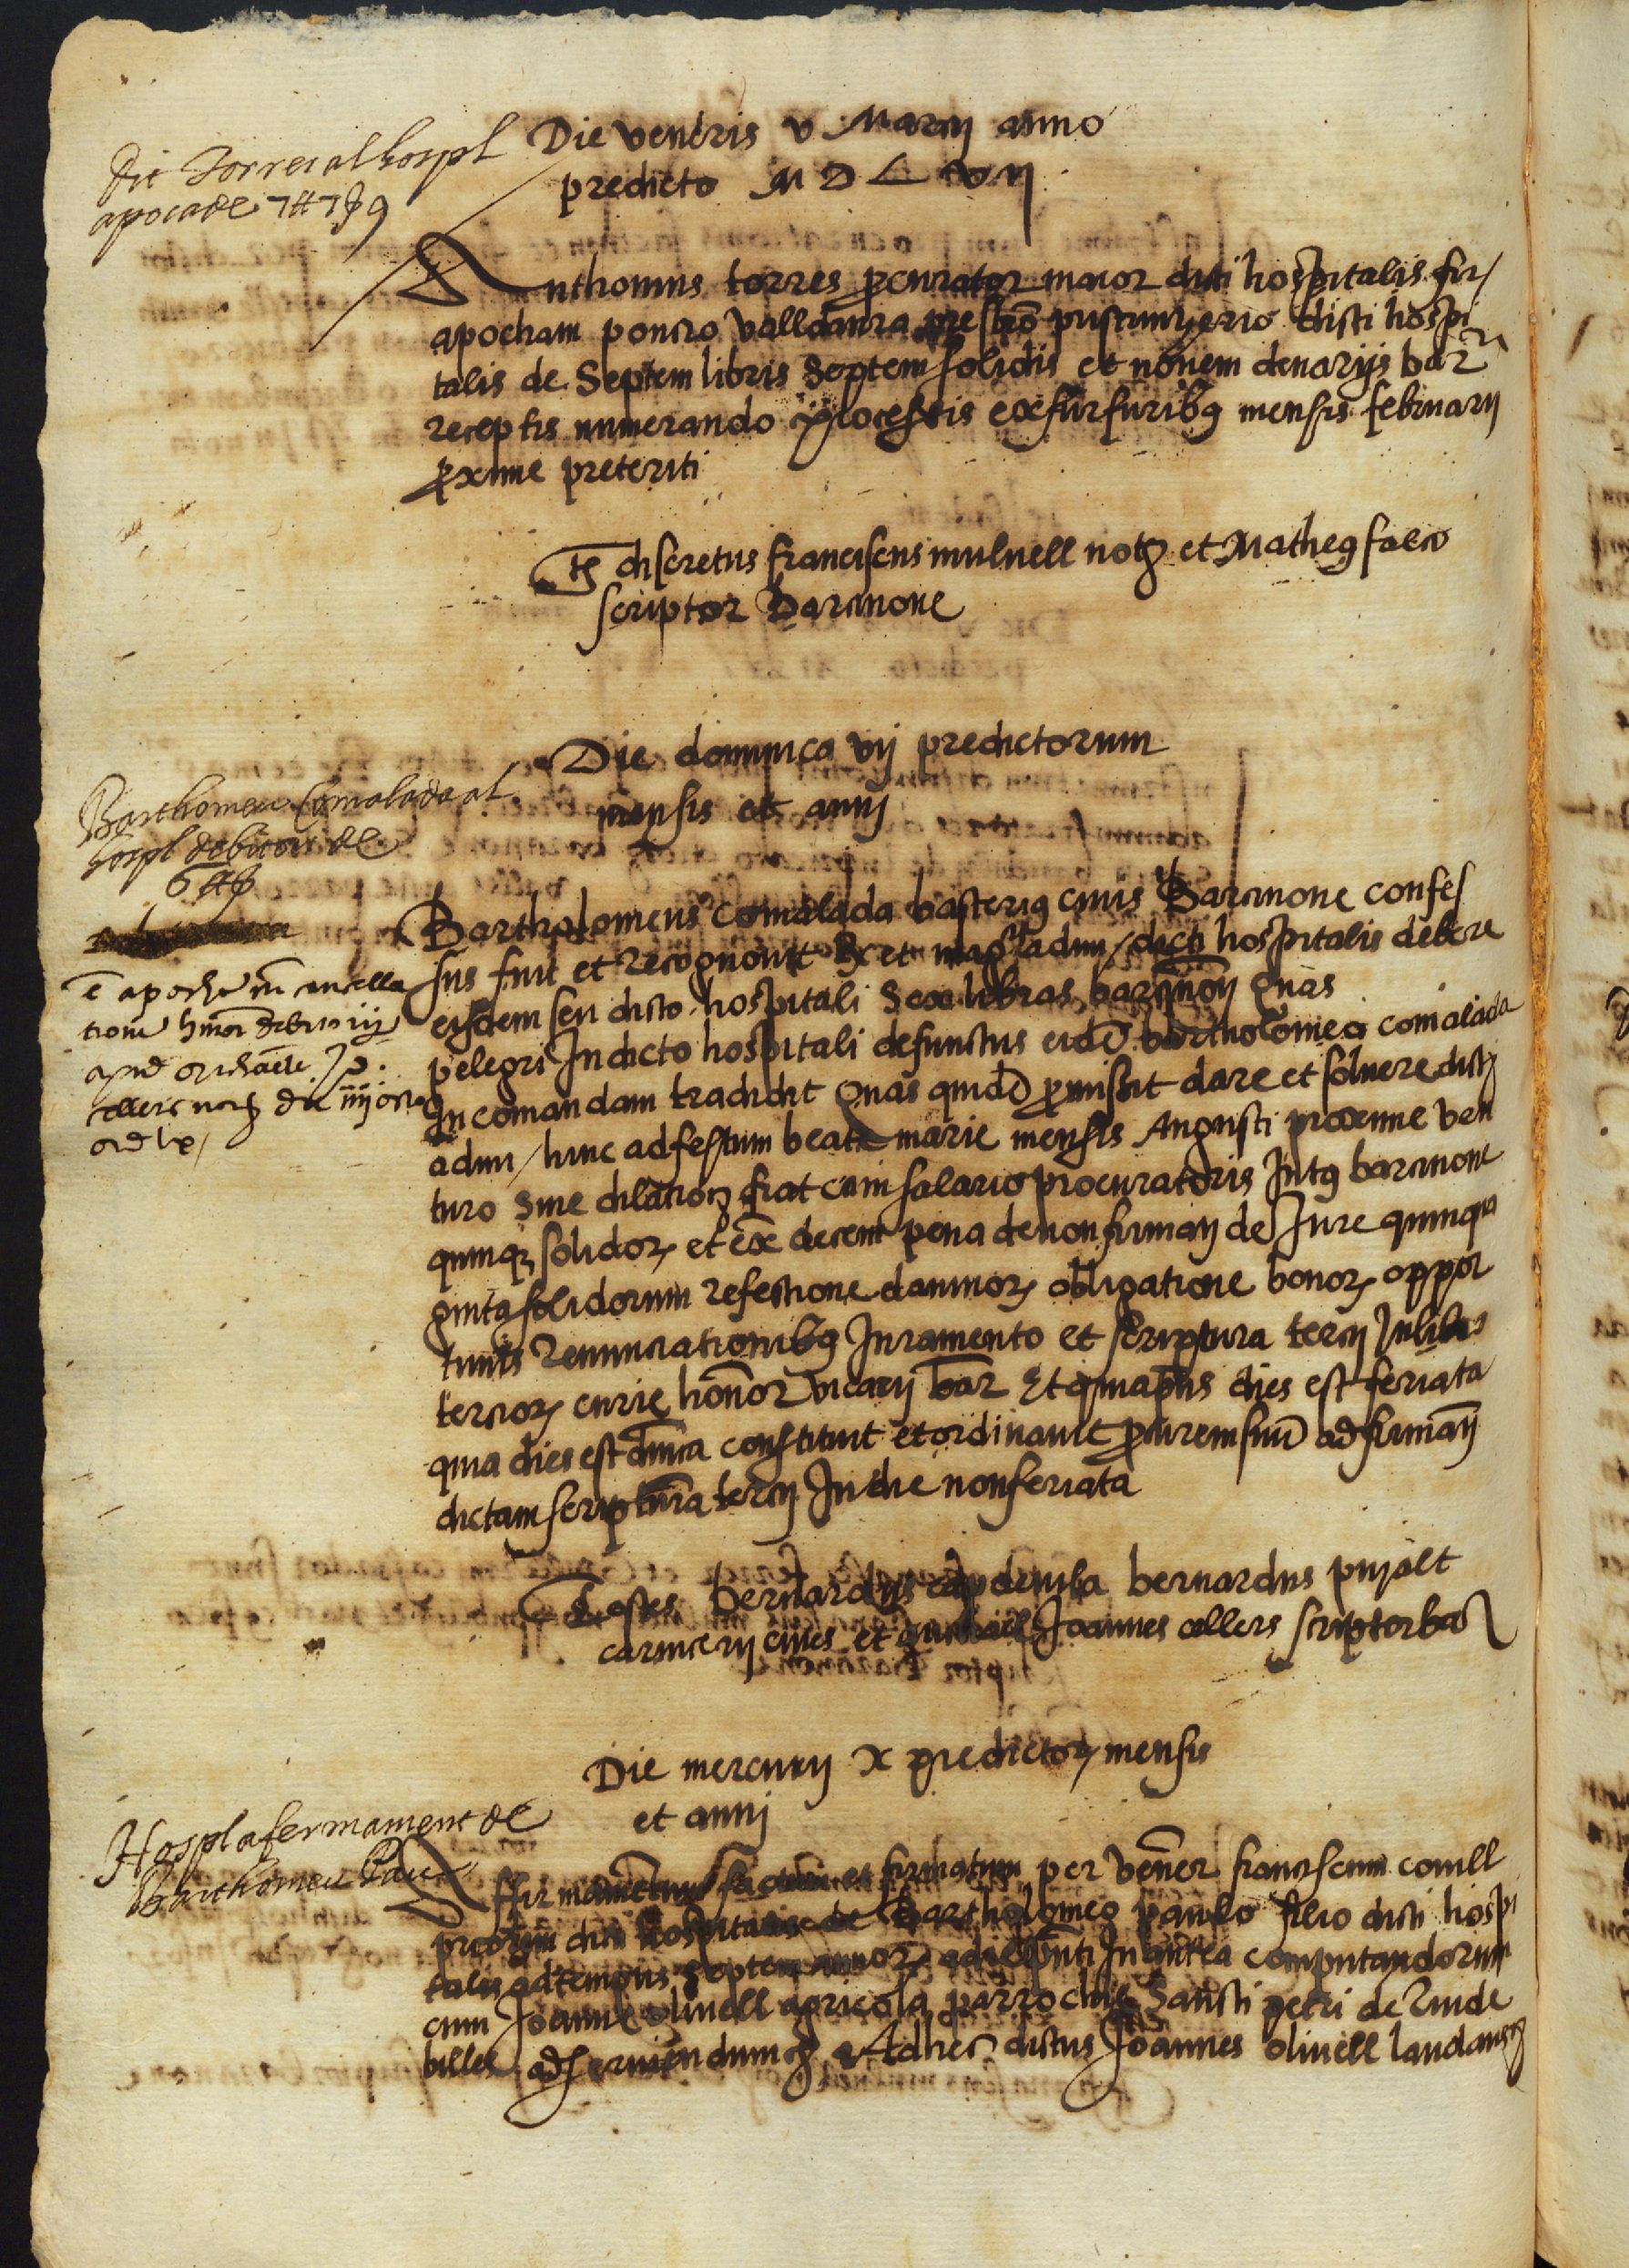 Die veneris v Marcij anno
predicto M D L vij
Dit Torres al hospl
apoca de 7 # 7 ß 9
Anthonius torres procurator maior dicti hospitalis fir/
apocham poncio valldaura prestbro pistrinyerio dicti hospi
talis de Septem libris Septem solidis et novem denarijs bar
receptis numerando processis ex furfuribus mensis februarij
proxime preteriti
ts discretus franciscus mulnell nots et Matheus falco
scriptor Barcinone
Die dominica vij predictorum
mensis et annj
Barthomeu Comalada al
hospl debitori de
6 # ß
Bartholomeus comalada basterius civis Barcinone confes
sus fuit et recognovit et admi/ dicti hospitalis debere
eisdem seu dicto hospitali Sex libras quas
pelegri In dicto hospitali defunctus eidem bartholomeo comalada
In comandam tradidit quas quidem promissit dare et solvere dictis
admi/ hinc ad festum beate marie mensis Augusti proxime ven
turo sine dilation fiat cum salario procuratoris Intus barcinone
quinque solidor et ex decem pena de non firmanj de Jure quinqua
ginta solidorum refectione damnor obligatione bonor oppor
tunis renunciationibus Juramento et scriptura tercij In libris
tercior curie honor vicarij bar Et quia pns dies est feriata
quia dies est dnica constituit et ordinavit procurem suum ad firmanj
dictam scriptura tercij In die non feriata
e apocha cancella
tione
die iiij
Testes bernardus capdevila bernardus pujalt
carnicerij cives et Joannes cellers scriptor bar
Die mercurij x predictor mensis
et annj
Hospl afermament de
Barthomeu Pau
Affirmamentum factum et firmatum per vener franciscum conill
priorem dicti hospitalis de Bartholomeo paulo filio dicti hospi
talis ad tempus Septem annor In antea computandorum
cum Joanne olivell agricola parrochie Sancti petri de Riude
billes ad serviendum Ad hec dictus Joannes olivell laudans